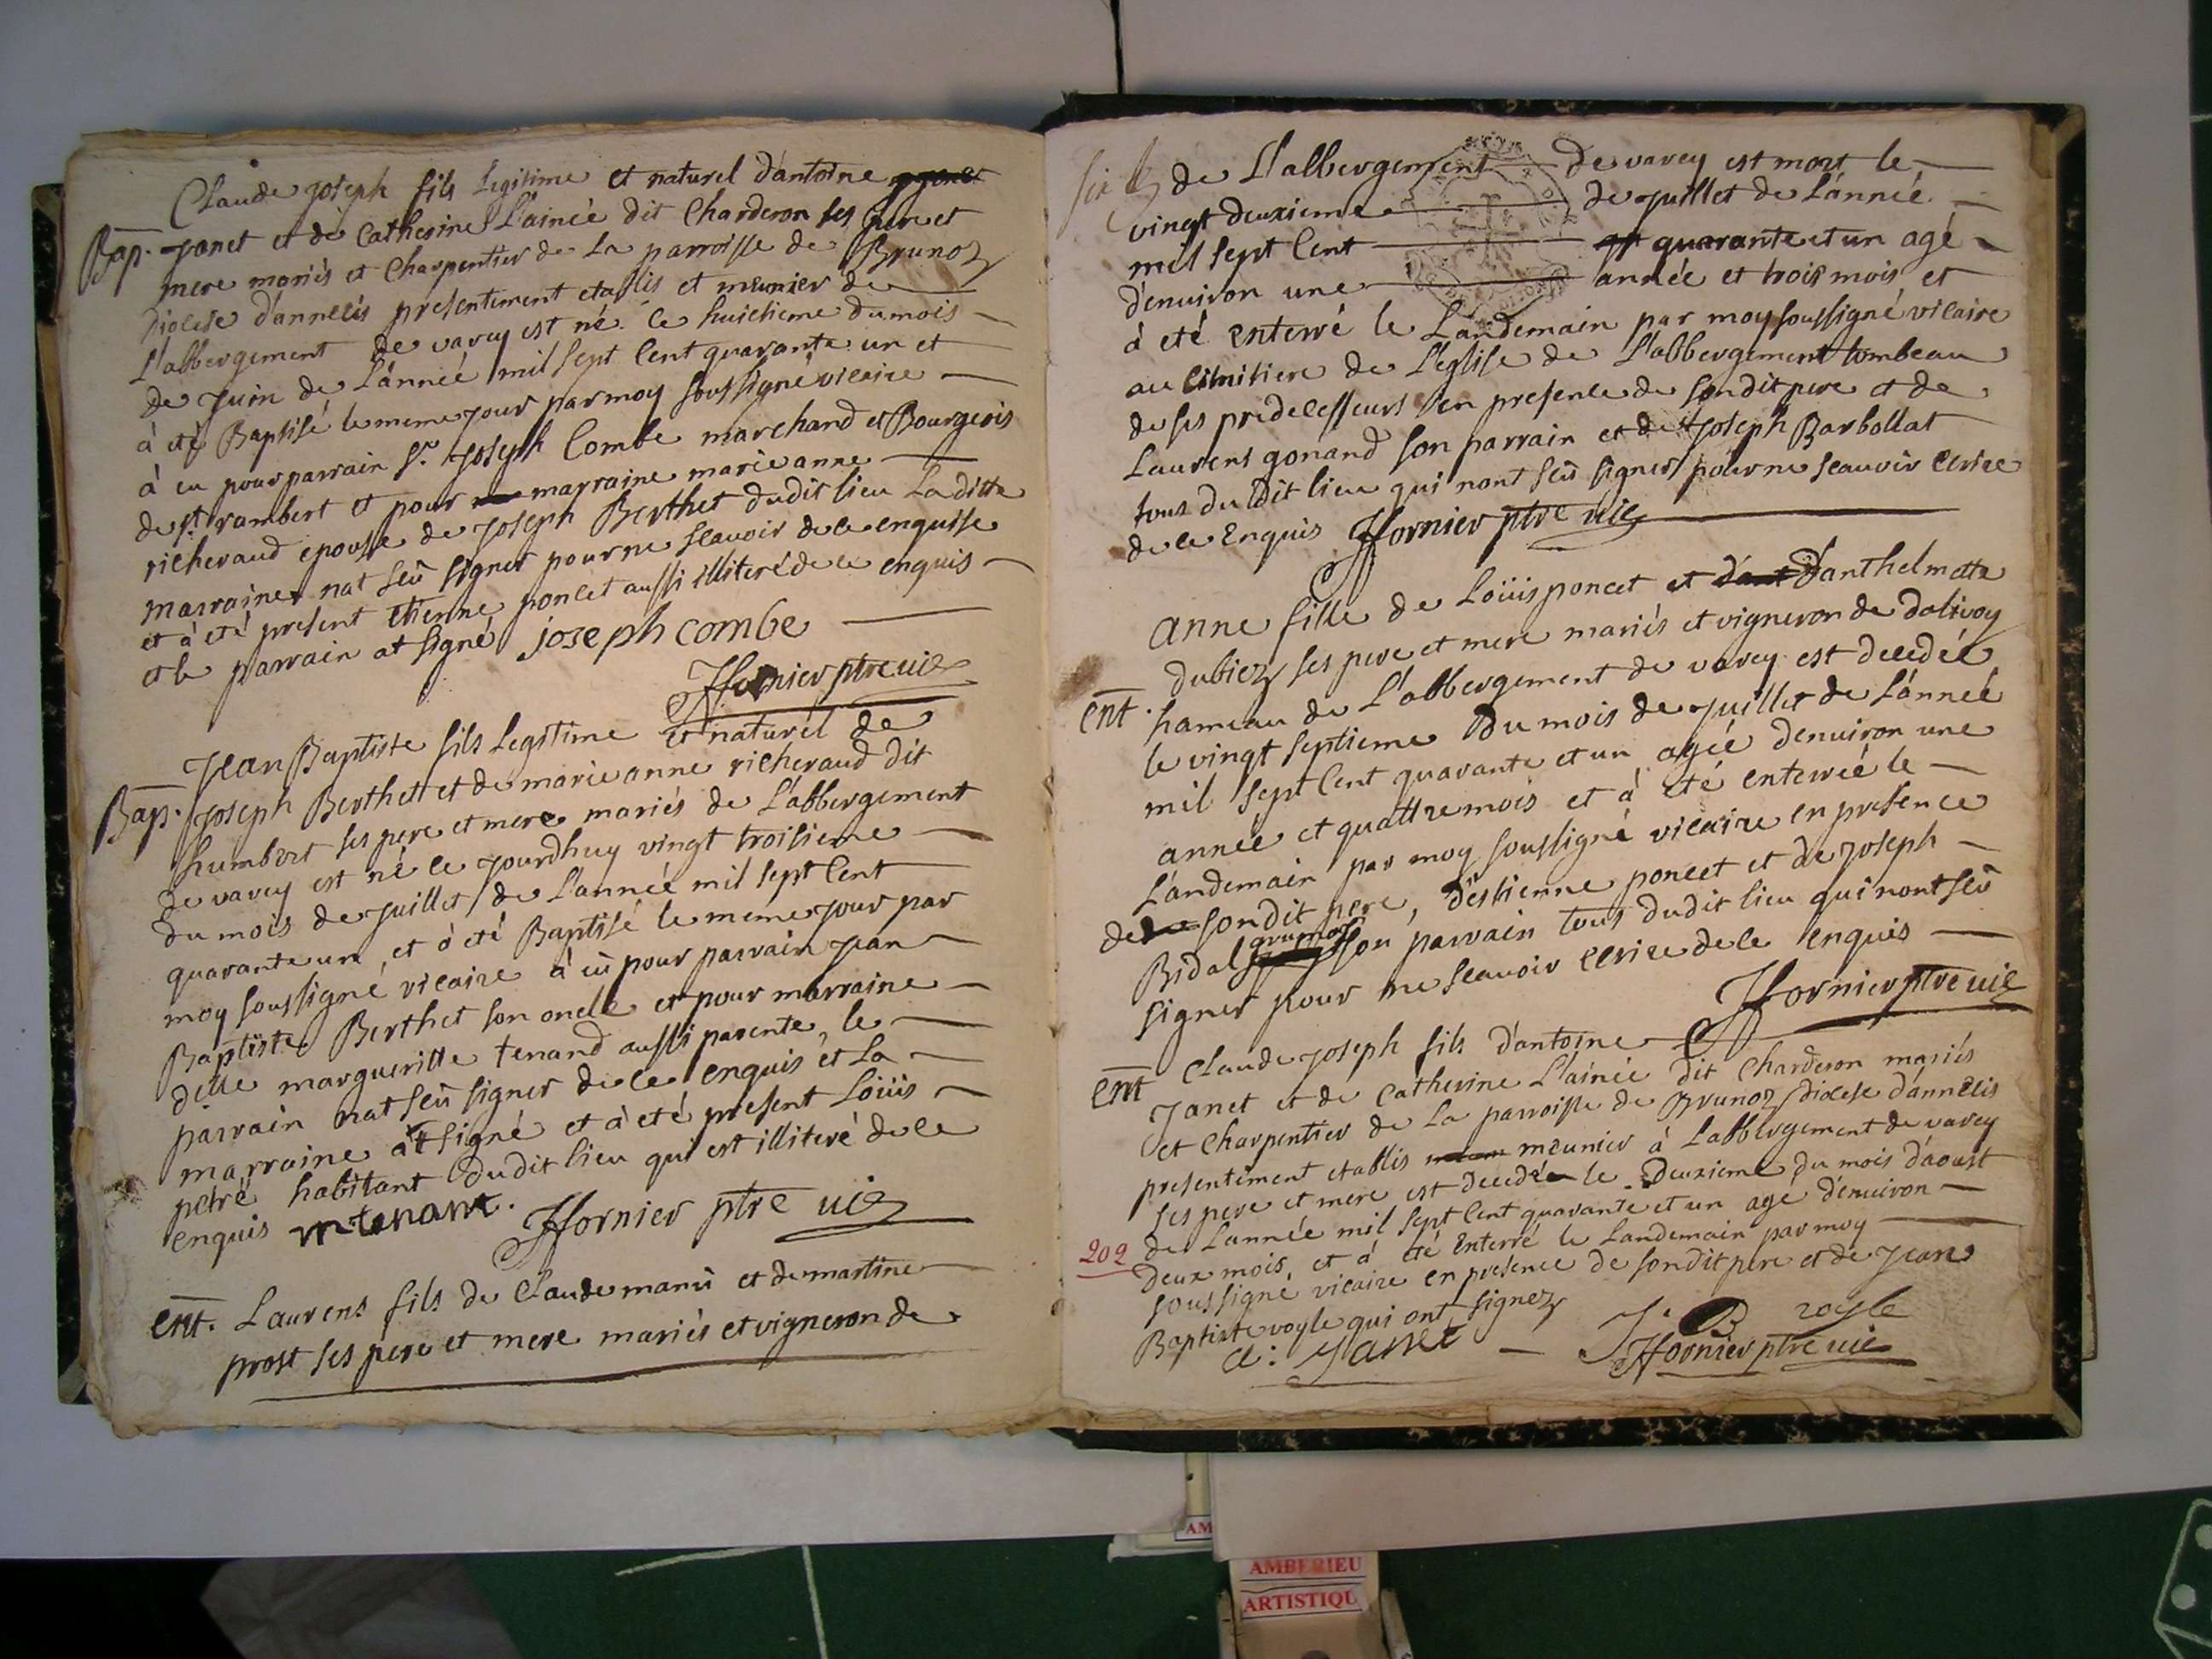 Claude joseph fils legitime et naturel dantoine
Bap. janet et de Catherine L'ainée dit Charderon ses pere et
mere mariés et Charpentier de La parroisse de Brunoz
Diocese d'annecis presentement etablis et meunier de
L'abbergement de varey est né le huictieme du mois
de juin de L'année mil sept Cent quarante un et
à eté Baptisé le meme jour par moy soussigné vicaire
à eu pour parrain Sr. joseph Combe marchand et Bourgeois
de st rambert et pour marraine marie anne
richeraud epouse de joseph Berthet dudit lieu La ditte
marraine nat seû signer pour ne scauoir de ce enquise
et à eté present etienne poncet aussi illiteré de ce enquis
et le parrain at signé joseph combe
ffornier ptre uic
Jean Baptiste fils Legitime et naturel de
Bap. joseph Berthet et de marie anne richeraud dit
humbert ses pere et mere mariés de L'abbergement
de varey est né ce jourdhuy vingt troisieme
du mois de juillet de L'année mil sept Cent
quarante un, et à eté Baptisé le meme jour par
moy soussigné vicaire à eû pour parrain jean
Baptiste Berthet son oncle et pour marraine
delle margueritte tenand aussi parente, le
parrain nat seû signer de ce enquis et La
marraine at signé et à eté present Loüis
petré habitant dudit lieu qui est illiteré de ce
enquis m. tenant. ffornier ptre uic
ent. Laurens fils de Claude et de martine
prost ses pere et mere mariés et vigneron de
six de L'abbergement de varey est mort le
vingt deuxieme de juillet de L'année
mil sept Cent quarante et un agé
d'enuiron une année et trois mois et
à eté enterré le Landemain par moy soussigné vicaire
au Cimitiere de L'eglise de L'abbergement tombeau
de ses predecesseurs en presence de sondit pere et de
Laurens gonand son parrain et de joseph Barbollat
tous dudit lieu qui nont seû signer pour ne scauoir ecrire
de ce enquis ffornier ptre uic
anne fille de Loüis poncet et d'anthelmette
dubiez ses pere et mere mariés et vigneron de dalivoy
ent. hameau de L'abbergement de varey est decedée
le vingt septieme du mois de juillet de L'année
mil sept Cent quarante et un agée denuiron une
année et quattre mois et à eté enterreé le
L'andemain par moy soussigné vicaire en presence
de sondit pere, d'estienne poncet et de joseph
Bidal son parrain tous dudit lieu qui nont seû
signer pour ne scauoir ecrire de ce enquis
ffornier ptre uic
ent Claude joseph fils d'antoine
Janet et de Catherine L'ainée dit Charderon mariés
et Charpentier de La parroisse de Brunoz diocese d'annecis
presentement etablis meunier à Labbergement de varey
ses pere et mere est decedé le deuxieme du mois d'aoust
de L'année mil sept Cent quarante et un agé d'enuiron
209
deux mois, et à eté enterré le Landemain par moy
soussigné vicaire en presence de sondit pere et de jean
Baptiste voyle qui ont signez
a: janet J. B voyle
ffornier ptre uic
AM
AMBERIEU
ARTISTIQU